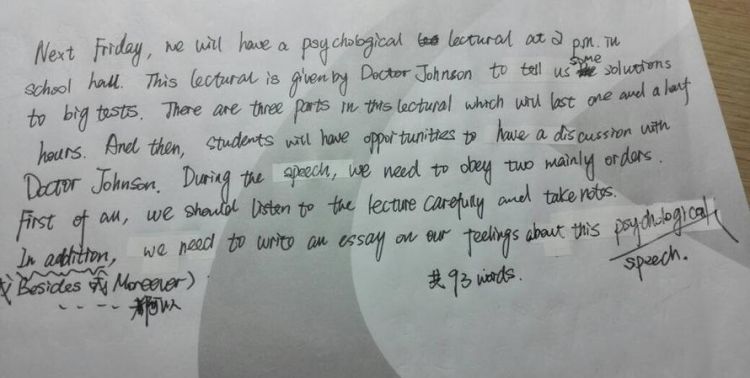 Next Friday, we will have a psychological lectural at 2 p.m. in
school hall. This lectural is given by Doctor Johnson to tell us some solutions
to big tests. There are three parts in this lectural which will last one and a half
hours. And then, students will have opportunities to have a discussion with
Doctor Johnson. During the speech, we need to obey two mainly orders.
First of all, we should listen to the lecture carefully and take notes.
In addition, we need to write an essay on our feelings about this psychological
speech.
或 Besides 或 Moreover)
都可以
共 93 words.